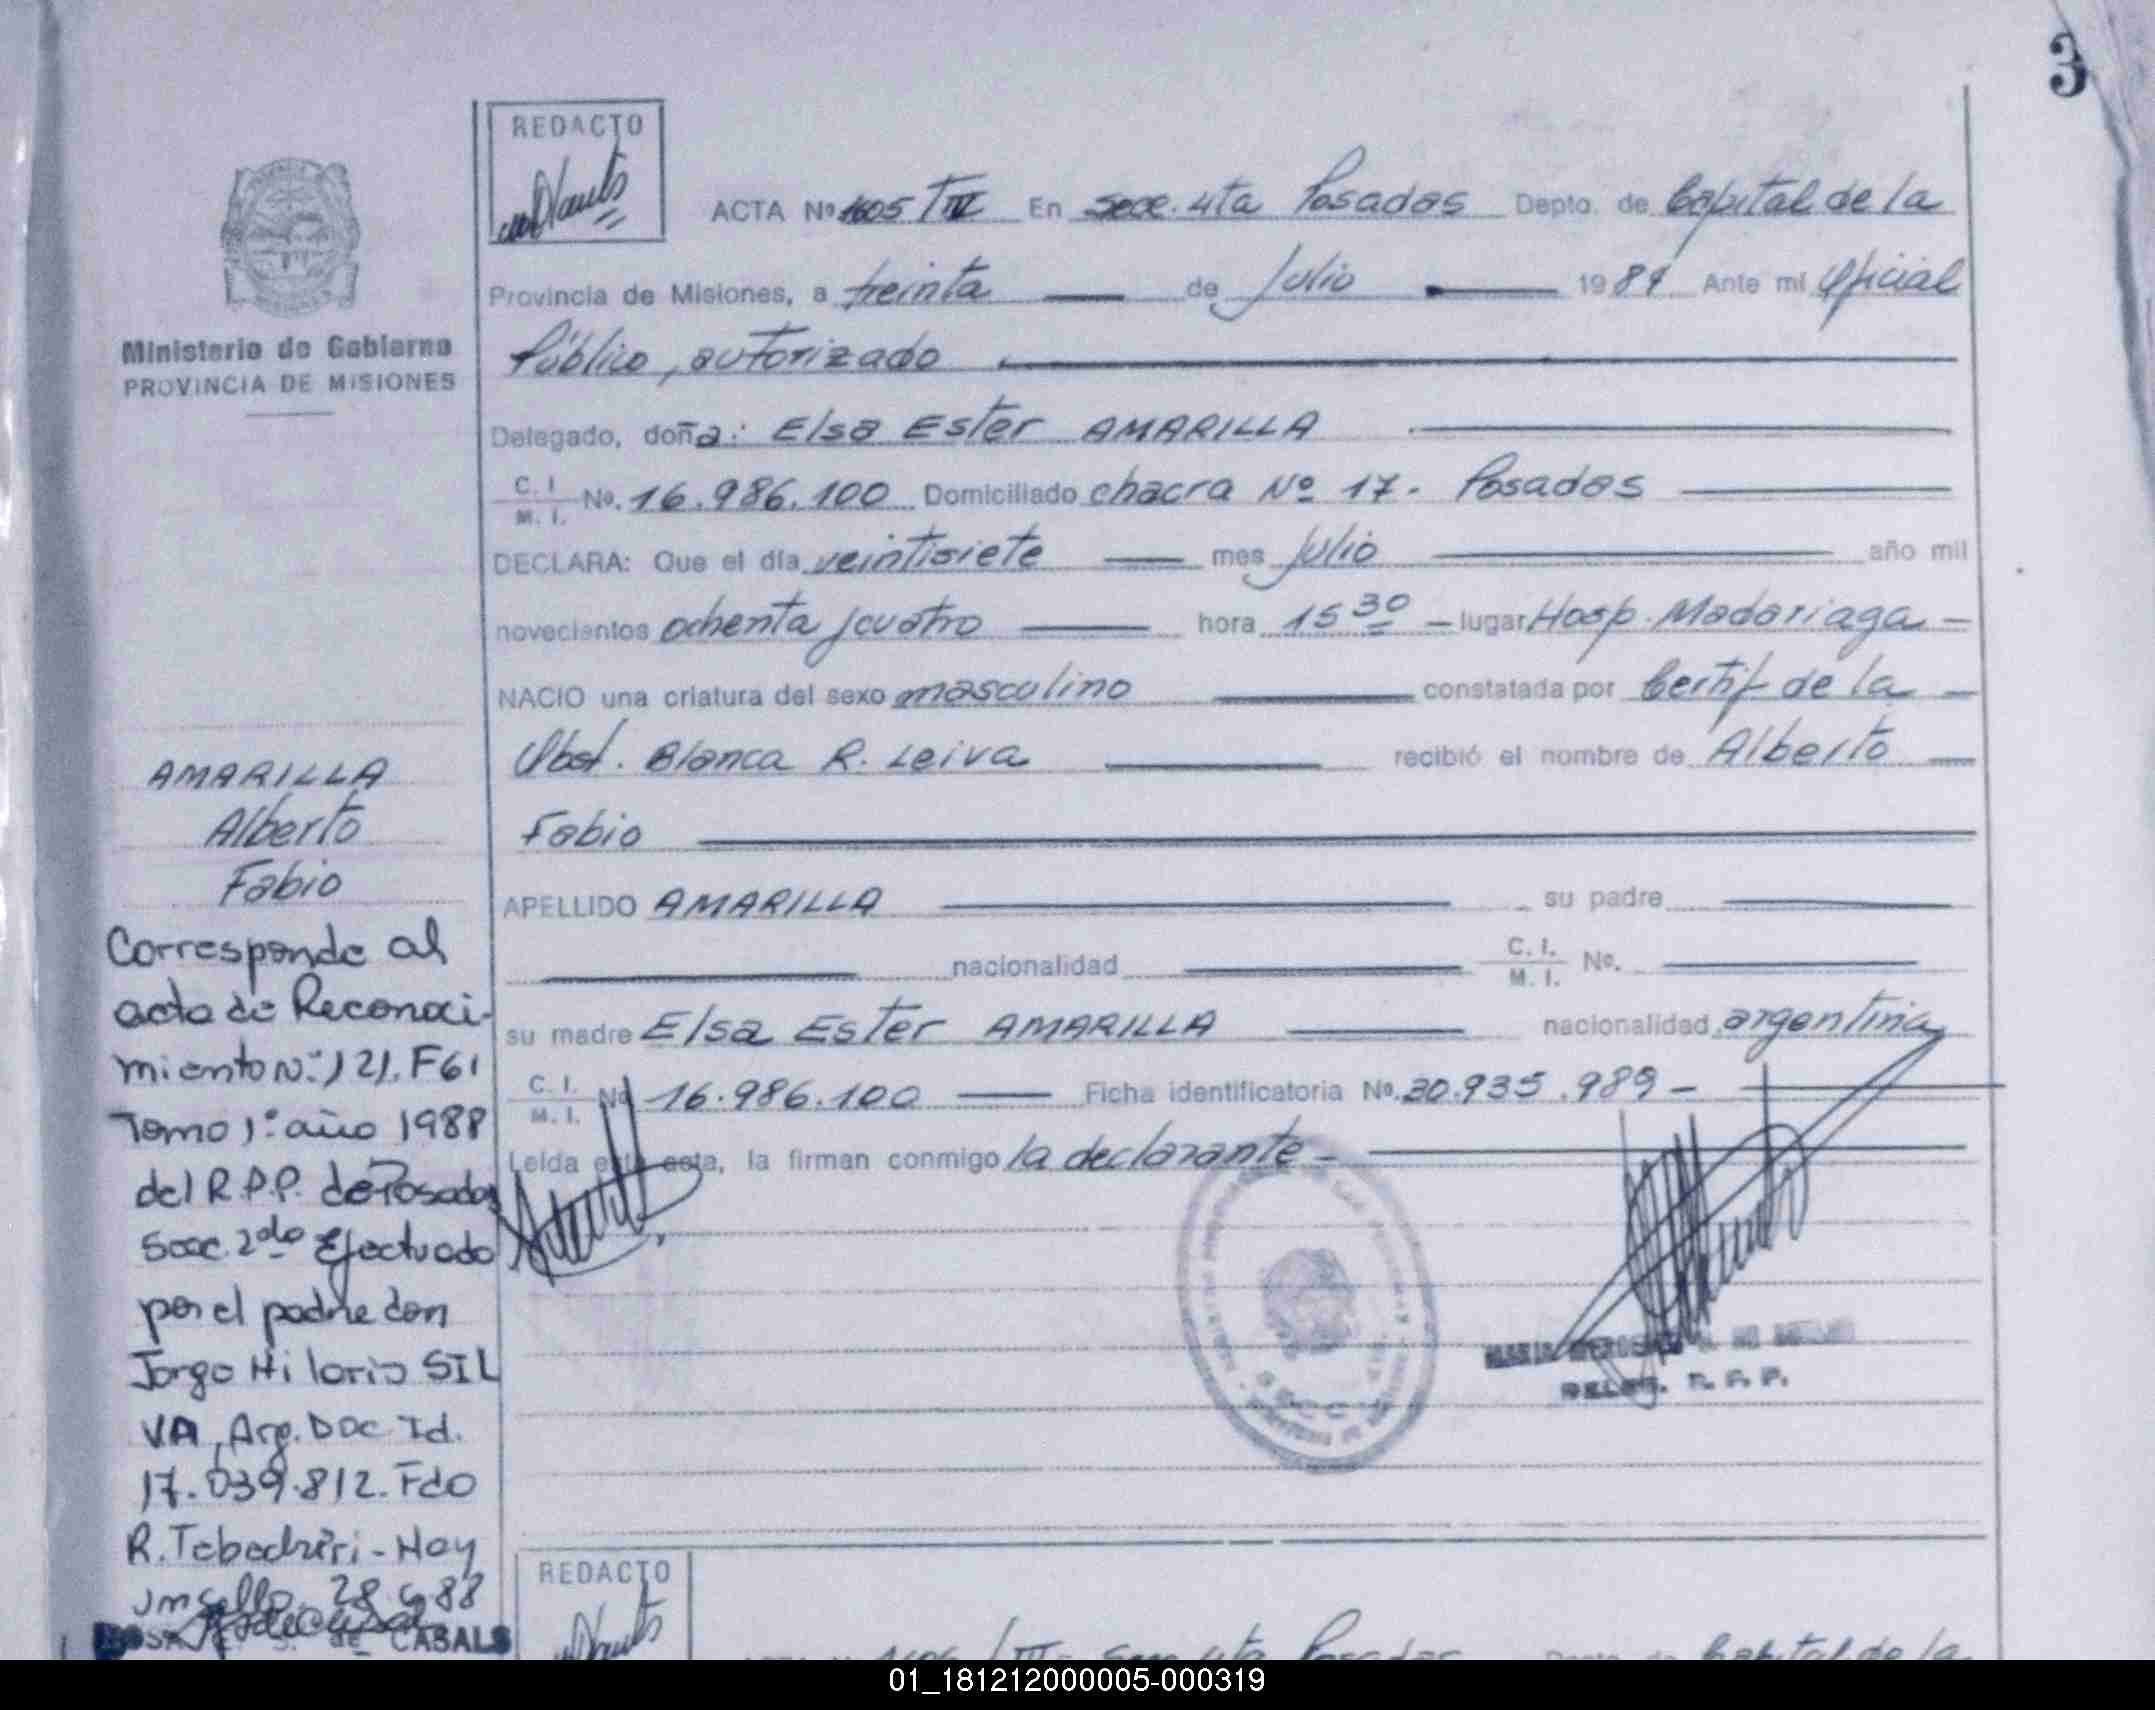 3
REDACTO
ACTA Nº 1605 TIII En secc. 4ta Posadas Depto. de Capital de la
Provincia de Misiones, a treinta de Julio 1984 Ante mi Oficial
Público, autorizado
Delegado, doña: Elsa Ester AMARILLA
C. I. M. I. No. 16.986.100 Domiciliado chacra Nº 17. Posadas
DECLARA: Que el día veintisiete mes Julio año mil
novecientos ochenta y cuatro hora 15 30 lugar Hosp. Madariaga
NACIO una criatura del sexo masculino constatada por Certif de la
Obst. Blanca R. Leiva recibió el nombre de Alberto
Fabio
APELLIDO AMARILLA su padre
nacionalidad C. I. M. I. No.
su madre Elsa Ester AMARILLA nacionalidad argentina
C. I. M. I. No 16.986.100 Ficha identificatoria No. 30.935.989
Leída esta acta, la firman conmigo la declarante
DELEG. R. P. P.
Ministerio de Gobierno
PROVINCIA DE MISIONES
AMARILLA
Alberto
Fabio
Corresponde al
acta de Reconoci-
miento Nº: 121. F61
Tomo 1º año 1988
del R.P.P. de Posadas
Secc. 2da Efectuado
por el padre don
Jorge Hilario SIL
VA, Arg. Doc Id.
17.039.812. Fdo
R. - Hoy
28 6 88
DE CASALS
REDACTO
secc 4ta Posadas Depto. de Capital de la
01_181212000005-000319